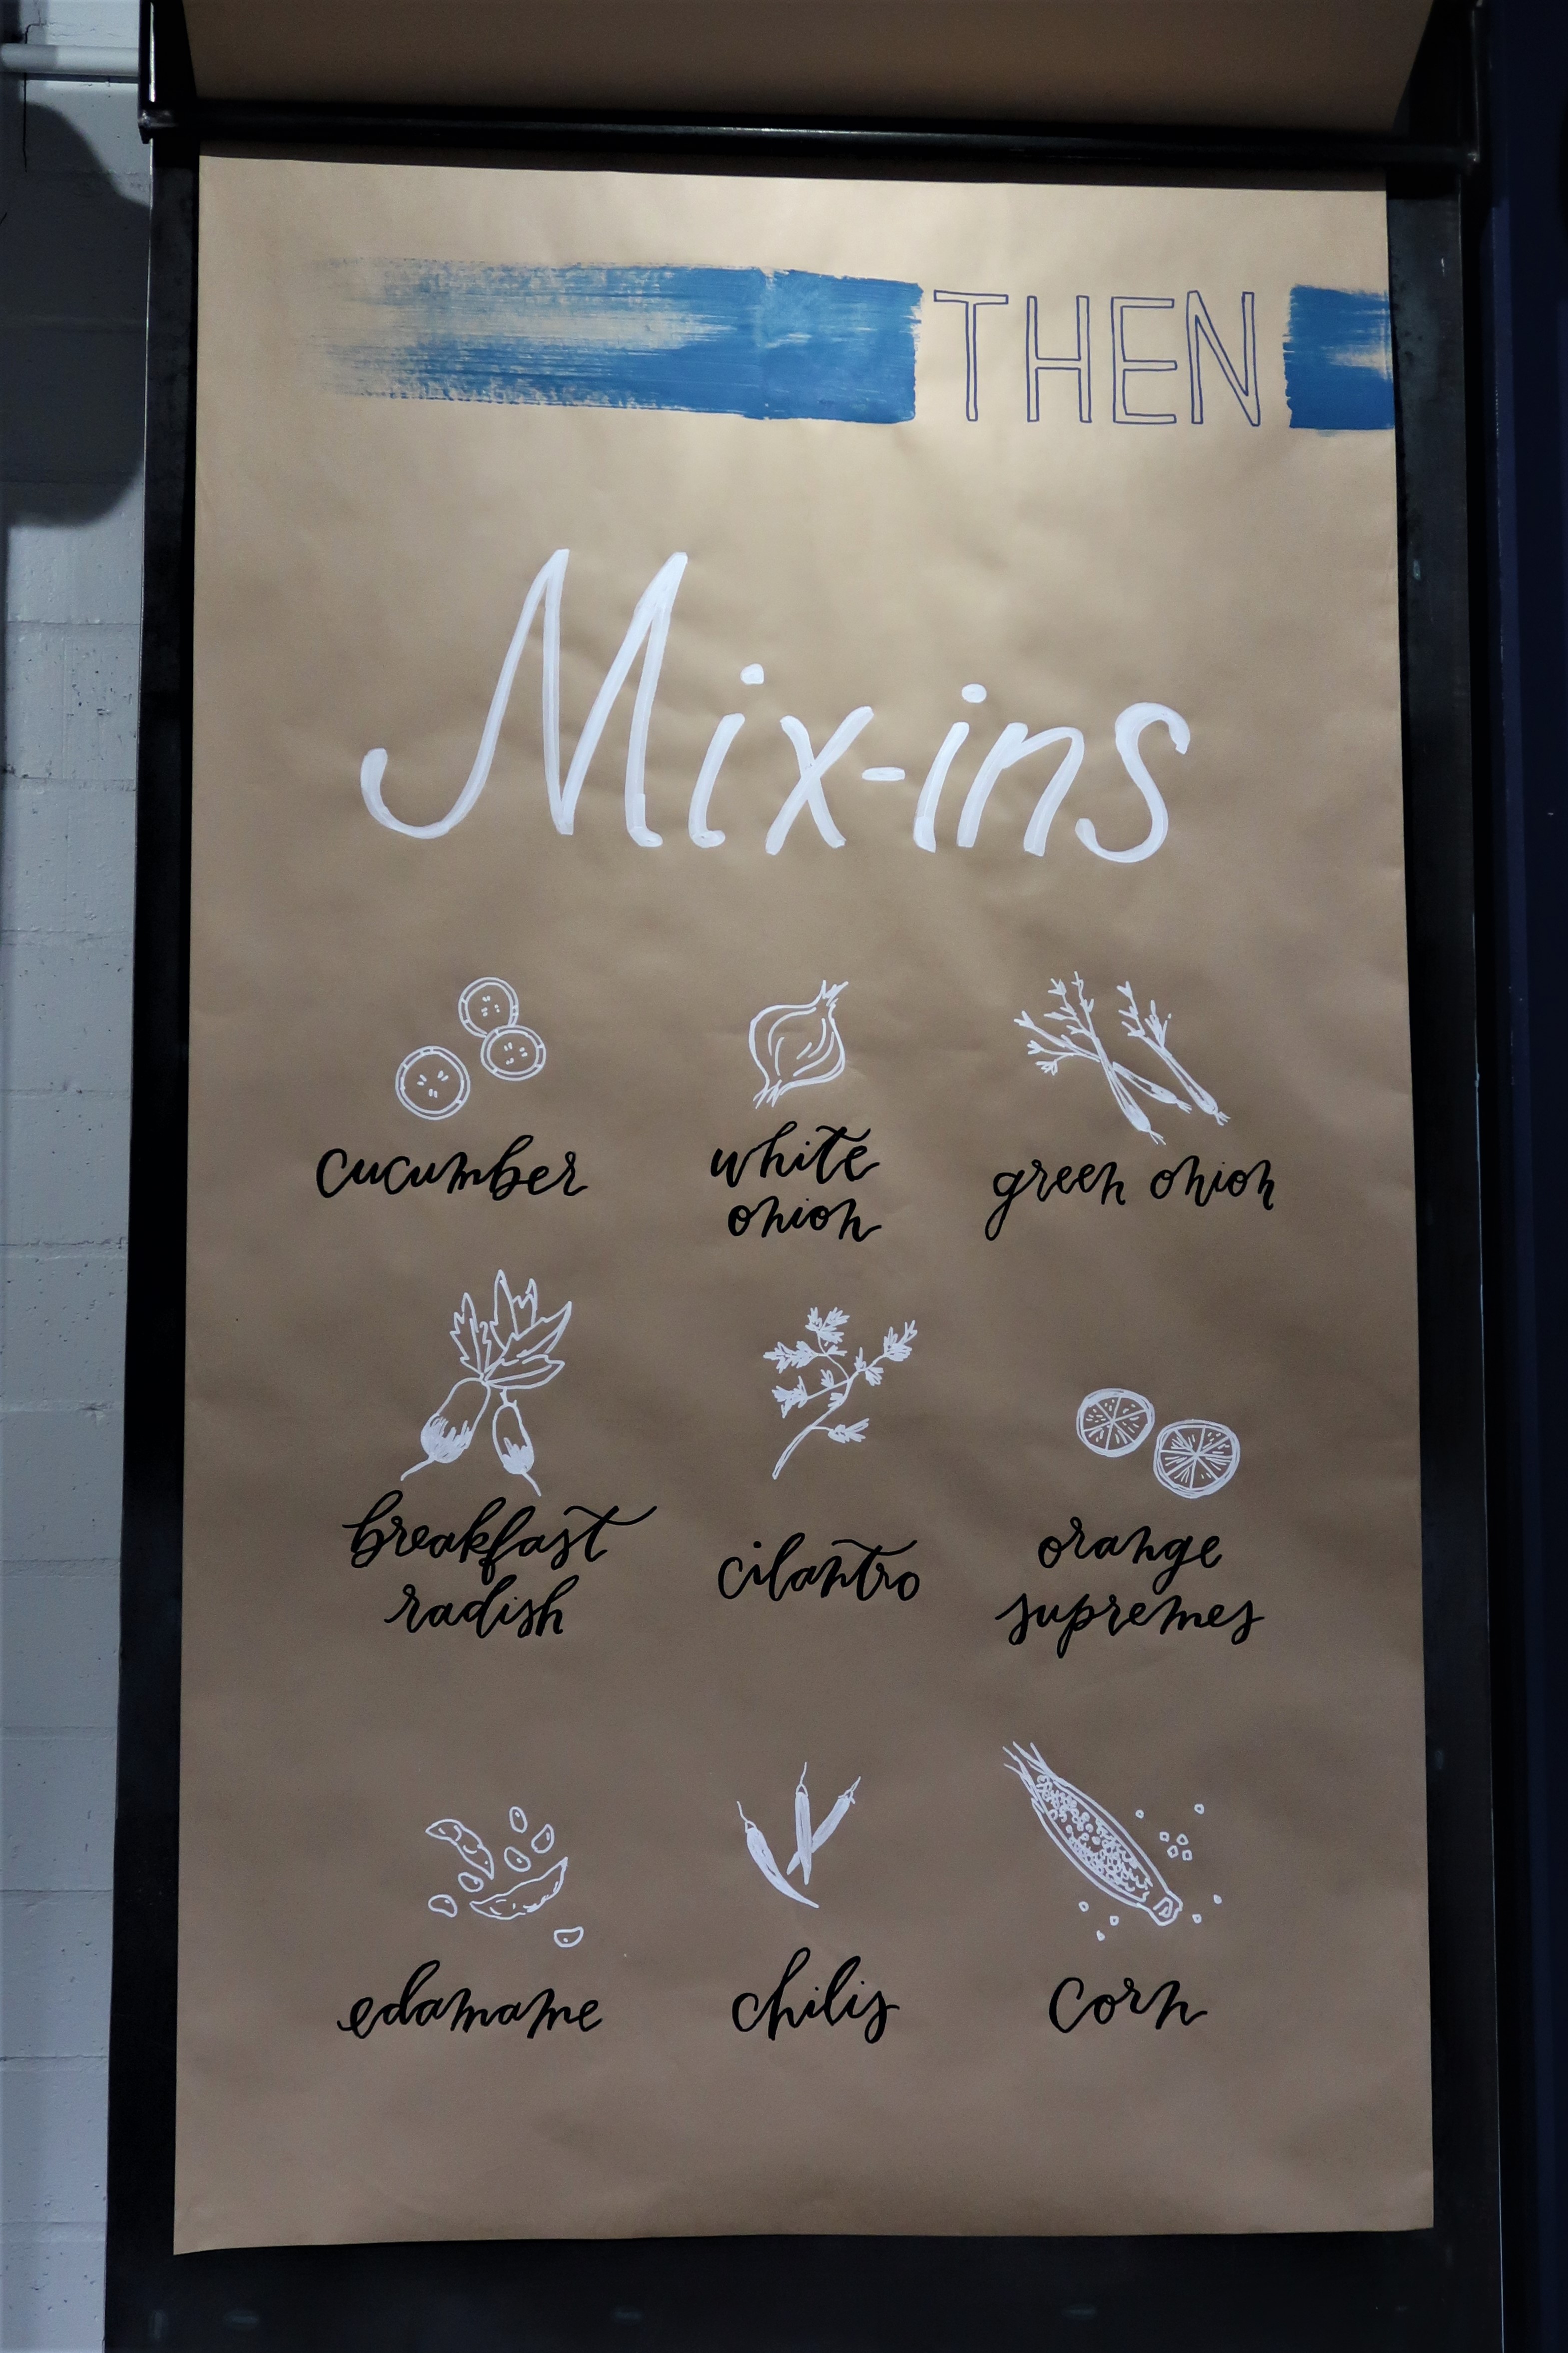 THEN
Mix-ins
cucumber
white
onion
green onion
breakfast
radish
cilantro
orange
supremes
edamame
chilis
corn